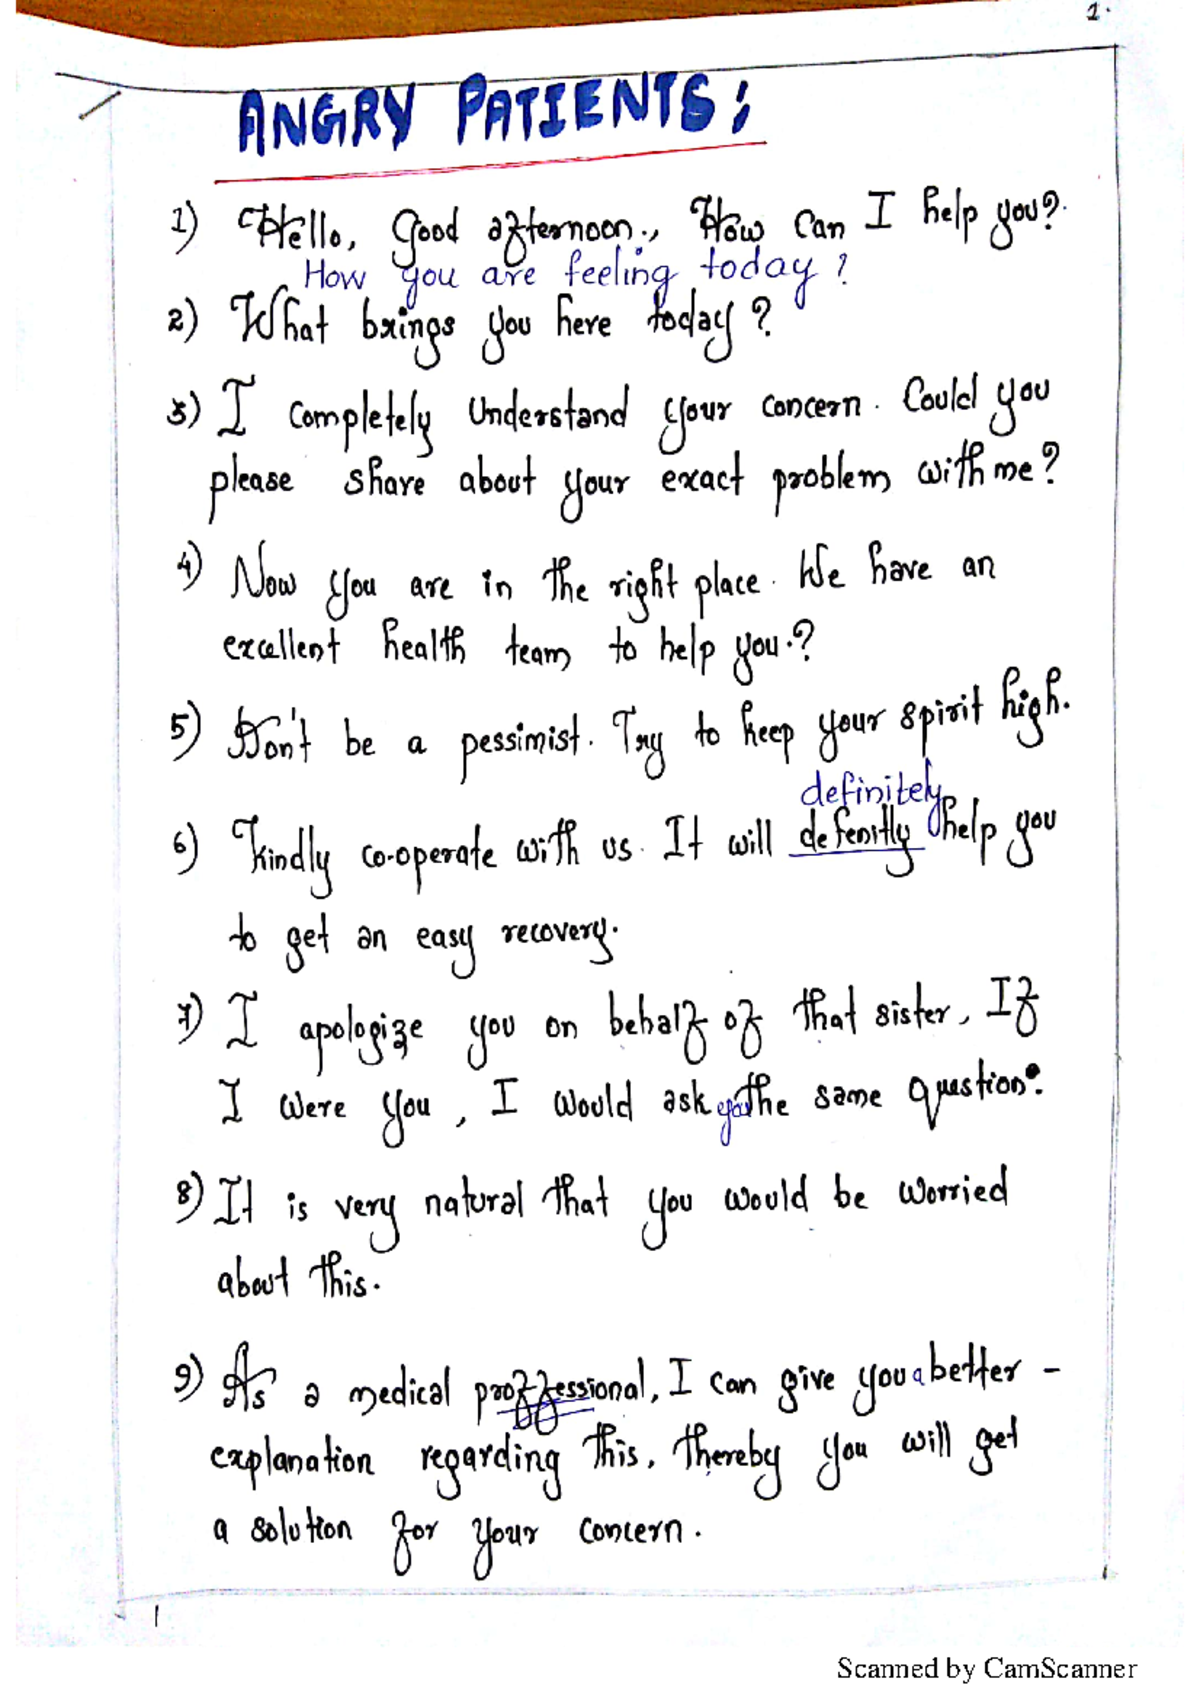 1.
ANGRY PATIENTS:
1) Hello, Good afternoon., How can I help you?
How you are feeling today?
2) What brings you here today?
3) I completely understand your concern. Could you
please share about your exact problem with me?
4) Now you are in the right place. We have an
excellent health team to help you.?
5) Don't be a pessimist. Try to keep your spirit high.
definitely
6) Kindly co-operate with us. It will defenitly help you
to get an easy recovery.
7) I apologize you on behalf of that sister, If
I were you, I would ask the same question.
8) It is very natural that you would be worried
about this.
9) As a medical proffessional, I can give you a better -
explanation regarding this, thereby you will get
a solution for your concern.
1
Scanned by CamScanner